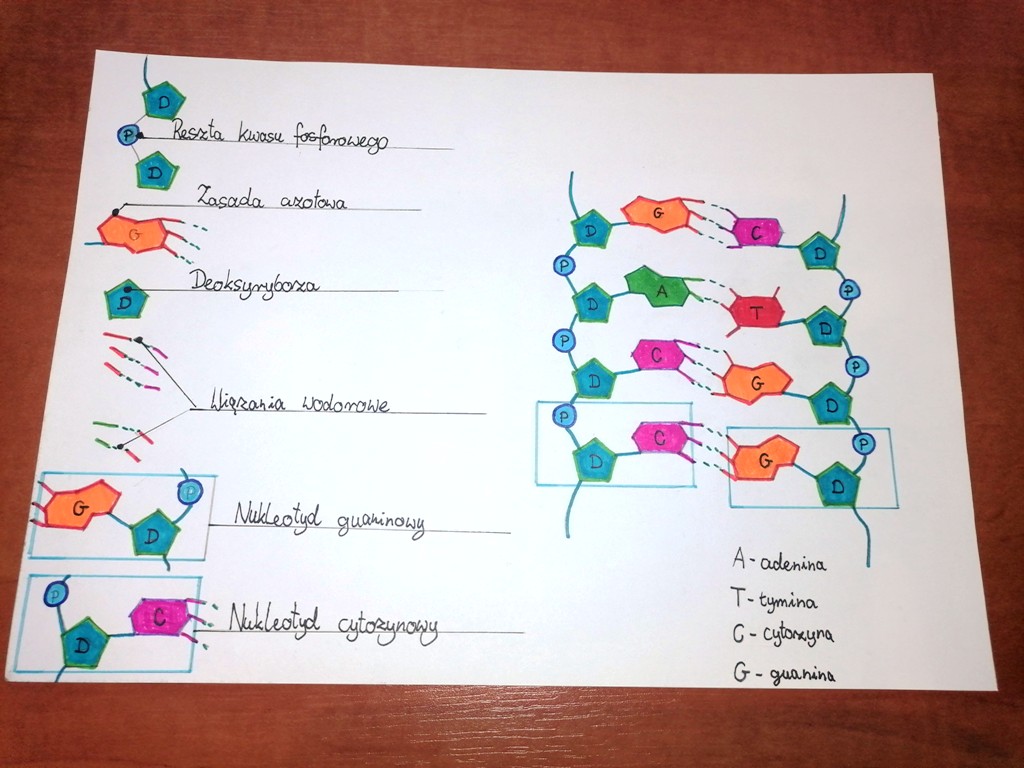 D
P
Reszta kwasu fosforowego
D
Zasada azotowa
G
Deoksyryboza
D
Wiązania wodorowe
G
P
Nukleotyd guaninowy
D
P
C
Nukleotyd cytozynowy
D
D G C D
P P
D A T D
P P
D C G D
P P
D C G D
A - adenina
T - tymina
C - cytozyna
G - guanina